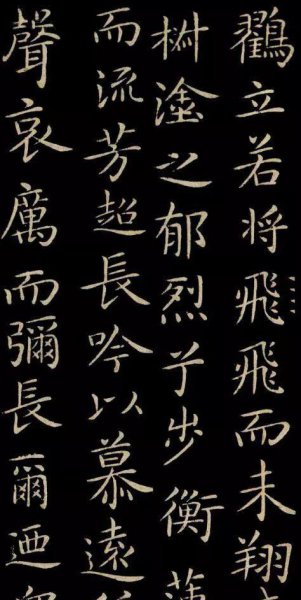 鸛立若将飛飛而未翔
椒塗之郁烈亍步衡薄
而流芳超長吟以慕遠
聲哀厲而彌長爾迺